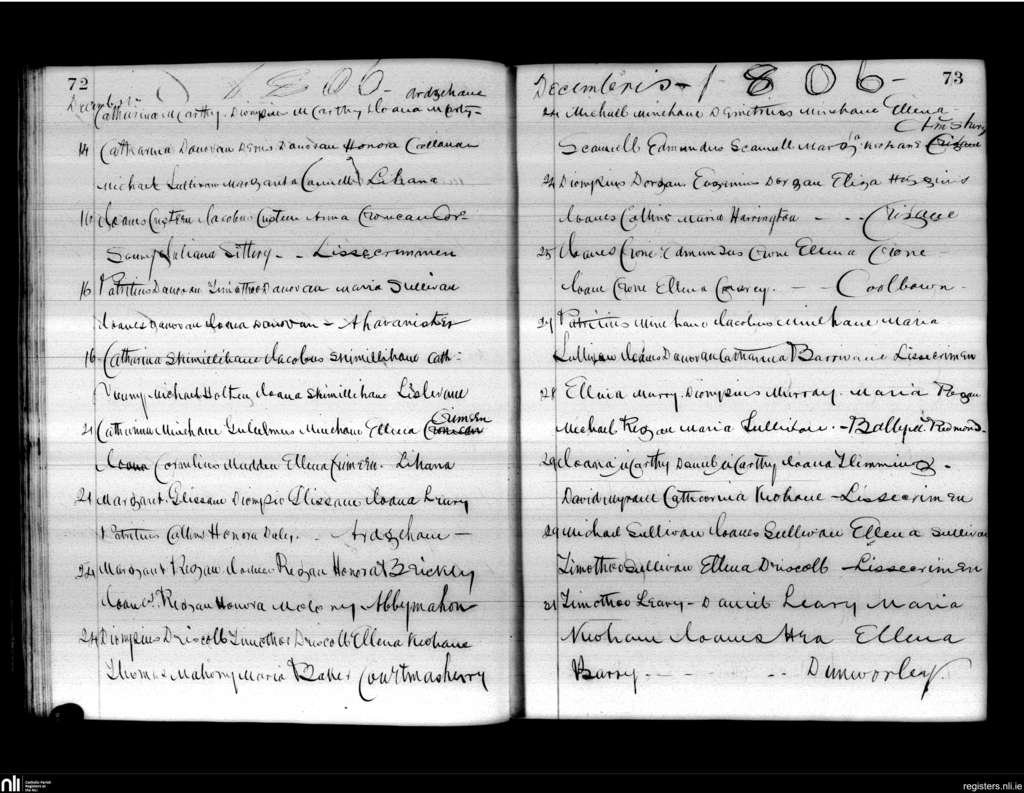 72
1806 -
December
Ardgehane
Catharina McCarthy Dionysius McCarthy Joana
14 Catharina Donovan Denis Donovan Honora Callanan
Michael Sullivan Margarita Lihana
16 Joanes Jacobus Anna
Juliana - - Lissecrimmen
16 Patritius Donovan Timotheo Danovan Maria Sullivan
Joanes Donovan Joana Donovan - Aharanister
16 Catharina Skimillihane Jacobus Skimillihane Cath:
Michael Joana Skimillihane Lislevane
Crimeen
21 Catharina Minehane Gulielmus Minehane Ellena
Cornelius Madden Ellena Crimeen. Lihana
21 Margant. Glissane Dionysio Glissane Joana Leury
Patritius Callins Honora Daley. - Ardgehane -
24 Margant Regan Joanes Regan Honorat Brickly
Joanes. Regan Honora Abbymahon
24 Dionysius Driscoll Timotheos Driscoll Ellena Keohane
Thomas Mahony Maria Baker Courtmasherry
73
Decembris - 1806 -
24 Michall Minehane Demetrius Minehane Ellena -
Scannell Edmundus Scannell Mary Keohane
24 Dionysius Dorgan Eugenius Dorgan Eliza Higgins
Joanes Collins Maria Harrington - - -
25 Joanes Crone Edmundus Crone Ellena Crone -
Joane Crone Ellena - - Coolbawn -
27 Patritius Minehane Jacobus Minehane Maria
Sullivan Joanes Donovan Catharina Lissecrimen
28 Ellnia Murry. Dionysius Murray. Maria Regan
Michael Regan Maria Sullivan. - Redmond.
29 Joana McCarthy Daniel McCarthy Joana Flemming.
David Catharina Keohane - Lissecrimen
29 Michael Sullivan Joanes Sullivan Ellena Sullivan
Timotheo Sullivan Ellena Driscoll - Lissecrimen
31 Timotheo Leary - Daniel Leary Maria
Keohane Joanes Hea Ellena
Barry. - - - - - Dunworley.
nli
Catholic Parish
Registers at
the NLI
registers.nli.ie